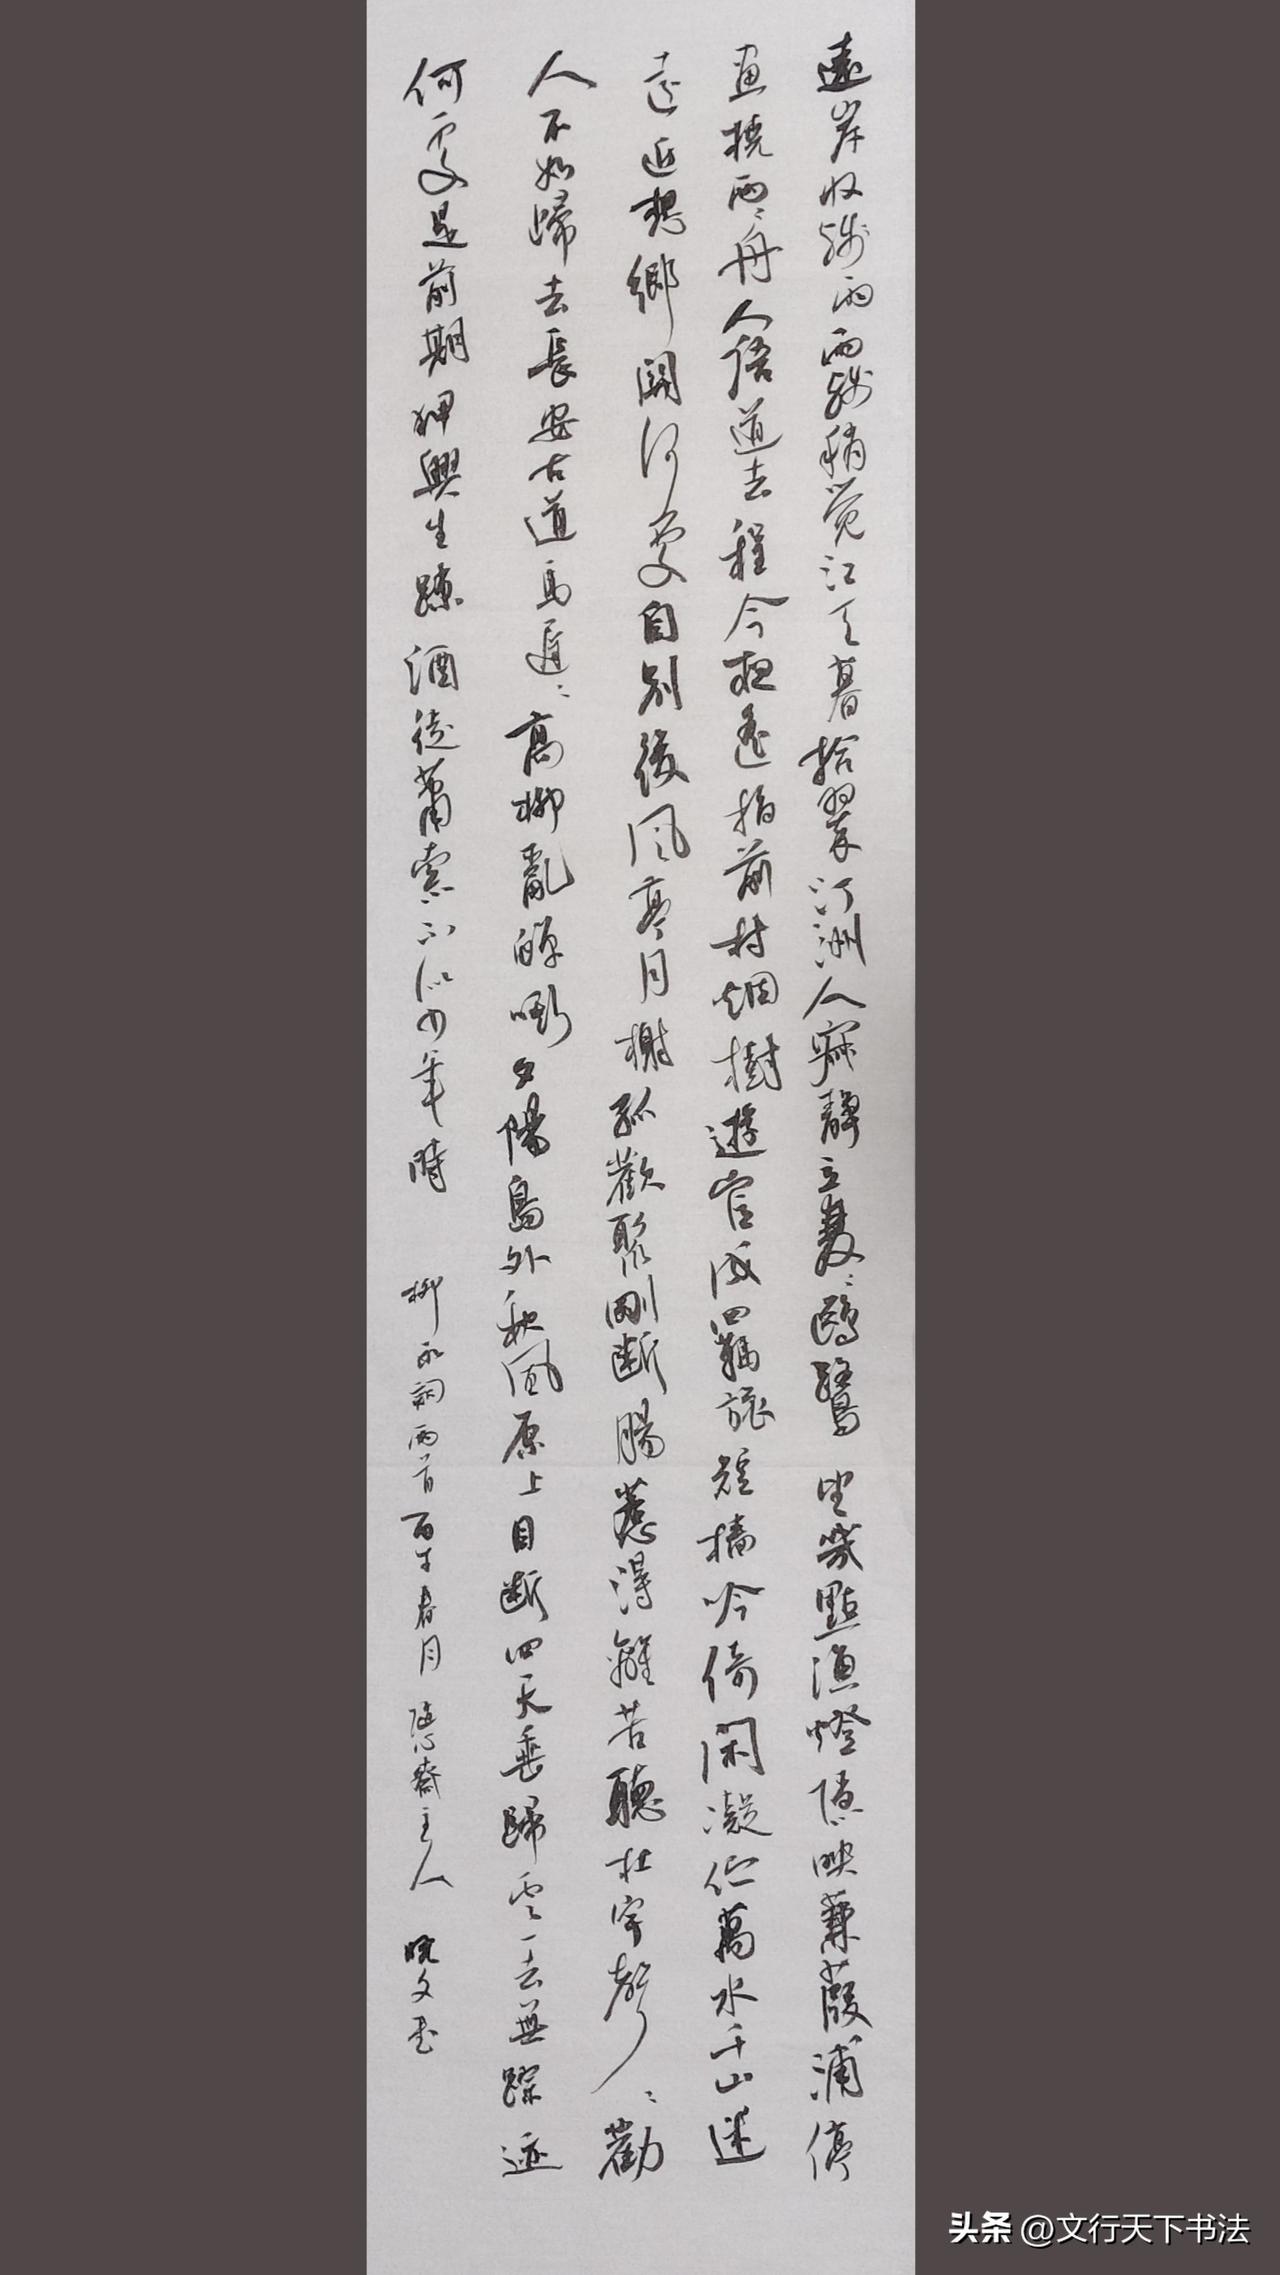 遠岸收殘雨雨殘稍覺江天暮拾翠汀洲人寂靜立雙〻鷗鷺望幾點漁燈隱映蒹葭浦停
畫橈兩〻舟人語道去程今夜遙指前村烟樹遊宦成羈旅短檣吟倚閑凝伫萬水千山迷
遠近想鄉關何處自別後風亭月榭孤歡聚剛斷腸惹得離苦聽杜宇聲〻勸
人不如歸去長安古道馬遲〻高柳亂蟬嘶夕陽島外秋風原上目斷四天垂歸雲一去無踪迹
何處是前期狎興生疎酒徒蕭索不似少年時 柳永詞兩首 丙午春月 齋主人 曉文書
头条 @文行天下书法